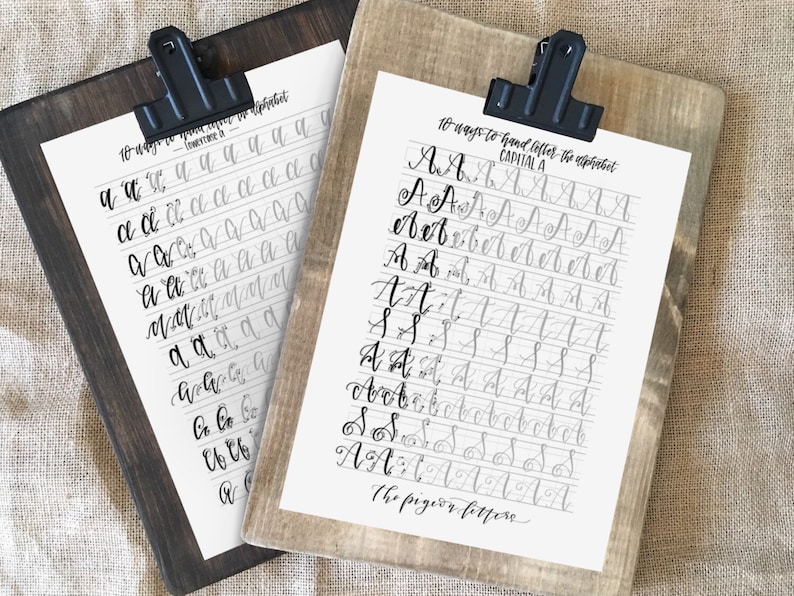 10 ways to hand letter the alphabet
lowercase a
a a a a a a a a a
a a a a a a a a a
a a a a a a a a
a a a a a a a a
a a a a a a a a
a a a a a a
a a a a a
a a a
a a a
a a
10 ways to hand letter the alphabet
CAPITAL A
A A A A A A A A A A
A A A A A A A A A
A A A A A A A A A A
A A A A A A A A A
A A A A A A A A A
A A A A A A A A
A A A A A A A A A
A A A A A A A A A
A A A A A A A A
A A A A A A A A A
the pigeon letters